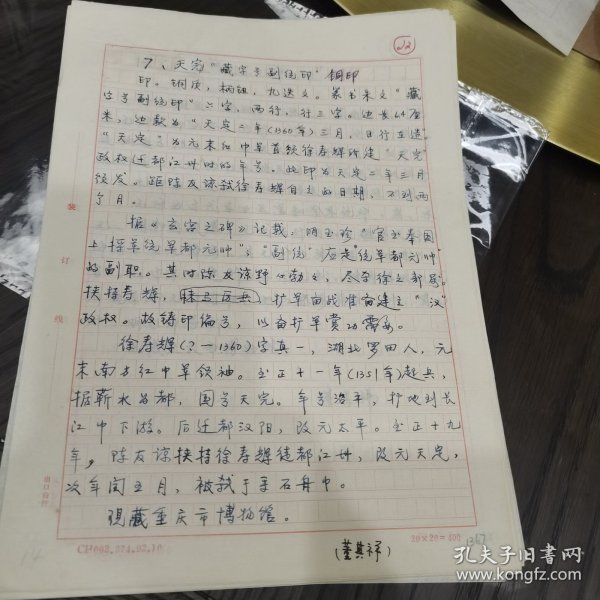 22
7、天完“藏字号副统印”铜印
印。铜质,柄钮,九迭文。篆书朱文“藏
字号副统印”六字,两行,行三字。边长6.4厘
米,边款为“天定二年(1360年)三月 日行在造”
“天定”为元末红中军首领徐寿辉所建“天完”
政权迁都江州时的年号。此印为天定二年三月
颁发。距陈友谅弑徐寿辉自立的日期,不到两
个月。
据《玄宫之碑》记载:明玉珍“官至奉国
上将军统军都元帅”;“副统”应是“统军都元帅”
的副职。其时陈友谅野心勃勃,尽杀徐之部属。
挟持寿辉, 扩军备战准备建立“汉”
政权。故铸印编号,以备扩军赏功需要。
徐寿辉(?一1360)字真一,湖北罗田人,元
末南方红巾军领袖。至正十一年(1351年)起兵,
据蕲水为都,国号天完。年号治平,扩地到长
江中下游。后迁都汉阳,改元太平。至正十九
年,陈友谅挟持徐寿辉徙都江州,改元天定,
次年闰五月,被弑于采石舟中。
现藏重庆市博物馆。
(董其祥)
装
订
线
CF002.074.92.10
20×20=400
1367
14
孔夫子旧书网
www.kongfz.com